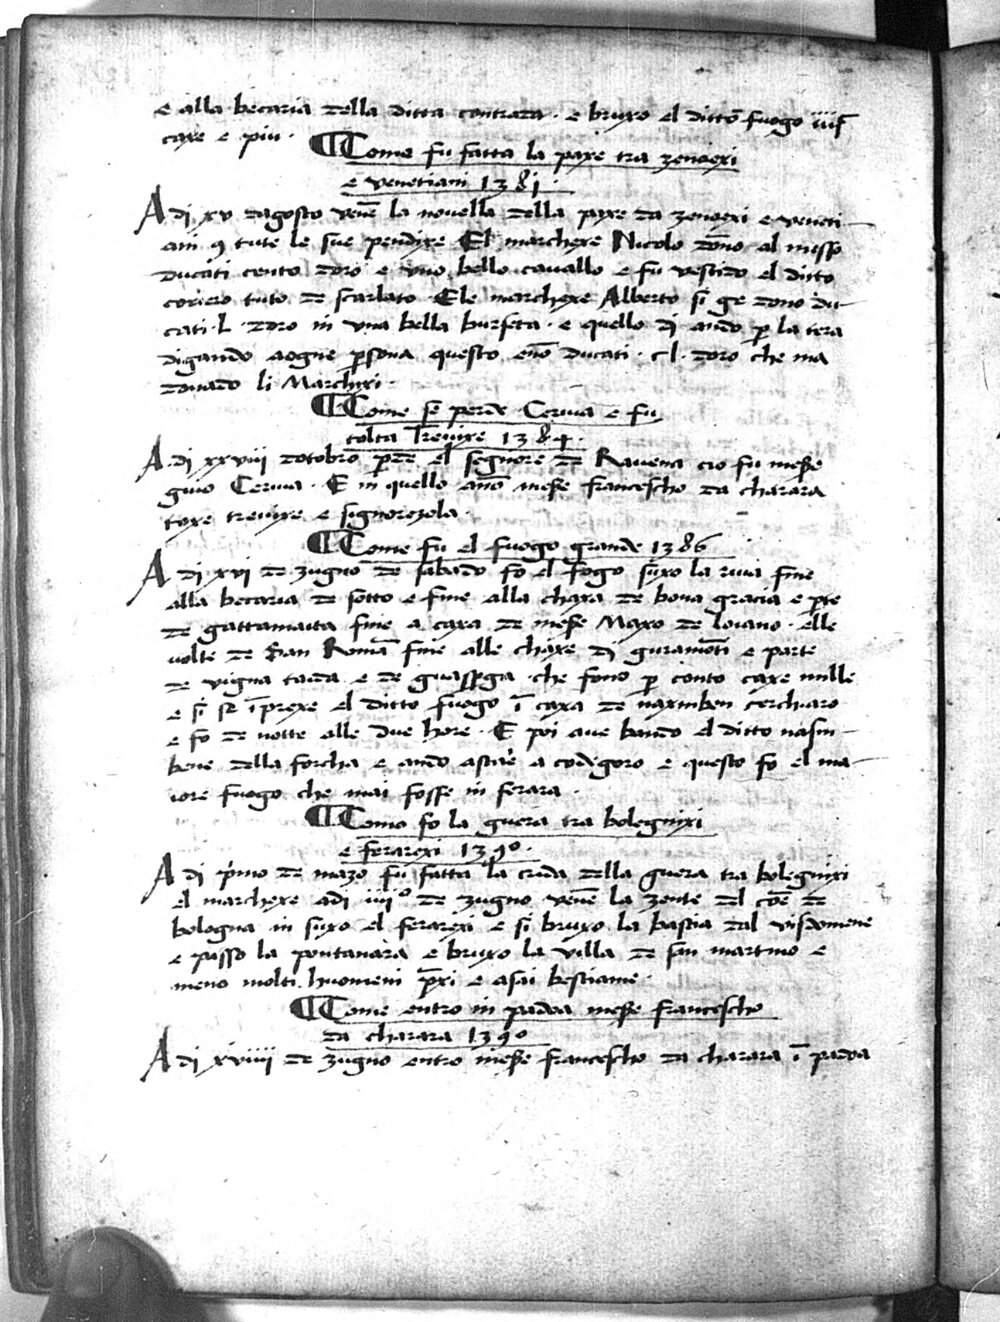 e alla becaria della ditta contrada · e bruxo el ditto fuogo
caxe e piu ·
¶ Come fu fatta la paxe tra zenoexi
e venetiani 1381 ·
A di xv dagosto vene la novella della paxe da zenoexi e veneti
ani 9 tute le sue pendixe El marchexe Nicolo dono al messo
ducati cento doro e uno bello cavallo e fu vestido el ditto
coriero tuto de scarlato · Ele marchexe Alberto si ge dono du
cati · L · doro in una bella burseta · e quello di ando p la tera
digando aogne psona questo eno ducati · cl · doro che ma
donado li Marchixi ·
¶ Come se perde Cervia e fu
tolta Trevixe 1384 ·
A di xxviii dotobro pde el segnore de Ravena cio fu messe
guio Cervia · E in quello ano messe francescho da charara
toxe trevixe e signorezola ·
¶ Come fu el fuogo grande 1386
A di xvi de zugno de sabado fo el fogo suxo la riva fine
alla becaria de sotto e fine alla chaxa de bona gracia e pte
de gattamarta fine a caxa de messe Maxo de loiano · elle
volte de san Roma fine alle chaxe di guramoti e parte
de vigna tada e de guassega che fono p conto caxe mille
e si se iprexe el ditto fuogo i caxa de naximben cerchiaro
e fo de notte alle due hore · E poi ave bando el ditto nasin
bene della forcha e ando astare a codegoro e questo fo el ma
iore fuogo che mai fosse in ferara ·
¶ Como fo la guera tra bolegnixi
e feraraexi 1390 ·
A di pimo de mazo fu fatta la crida della guera tra bolegnixi
el marchexe adi iiii° de zugno vene la zente del coe de
bologna in suxo el ferarexi e si bruxo la bastia dal visdomene
e passo la pontanara e bruxo la villa de san martino e
meno molti huomeni pxi e asai bestiame ·
¶ Come entro in padoa messe francescho
da charara 1390
A di xviiii de zugno entro messe francescho da charara i padoa